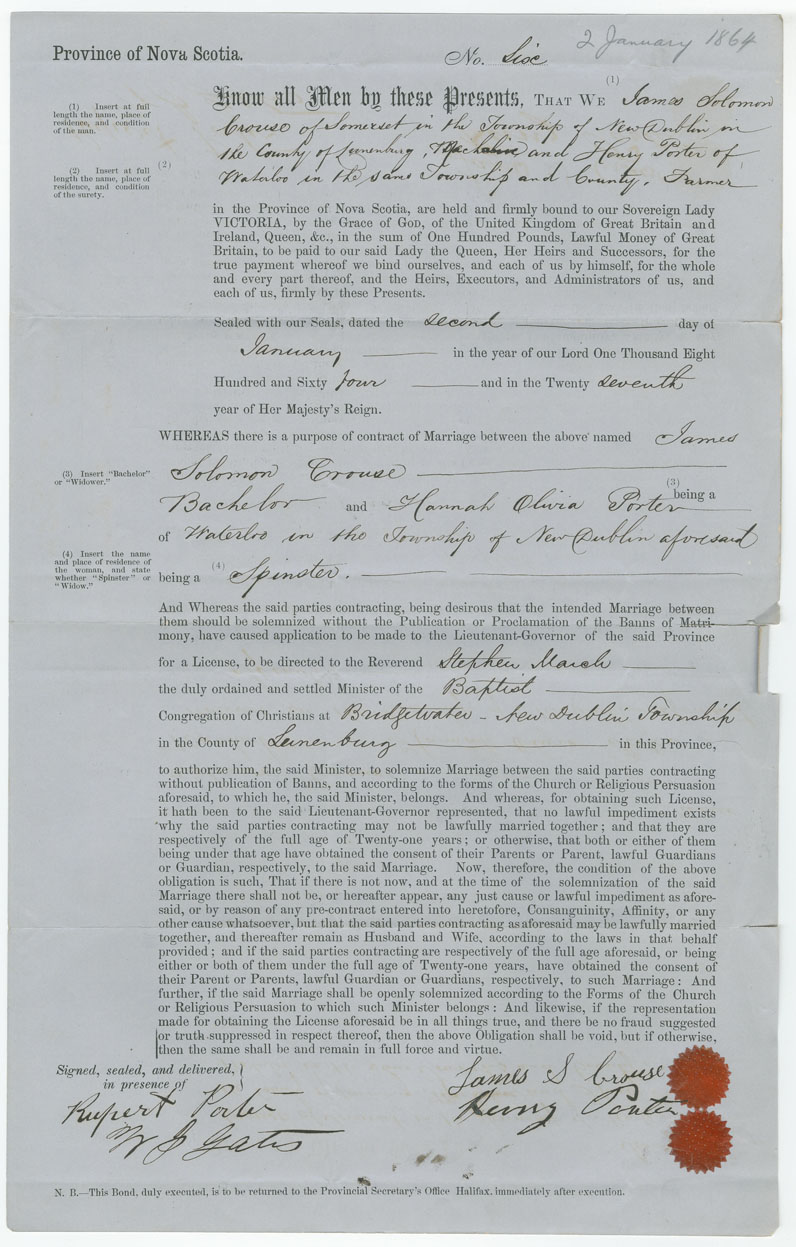 2 January 1864
Province of Nova Scotia.
No. Six
(1) Insert at full
length the name, place of
residence, and condition
of the man.
(1)
Know all Men by these Presents, THAT WE James Solomon
Crouse of Somerset in the Township of New Dublin in
the County of Lunenburg, and Henry Porter of
(2) Insert at full
length the name, place of
residence, and condition
of the surety.
(2)
Waterloo in the same Township and County. Farmer
in the Province of Nova Scotia, are held and firmly bound to our Sovereign Lady
VICTORIA, by the Grace of GOD, of the United Kingdom of Great Britain and
Ireland, Queen, &c., in the sum of One Hundred Pounds, Lawful Money of Great
Britain, to be paid to our said Lady the Queen, Her Heirs and Successors, for the
true payment whereof we bind ourselves, and each of us by himself, for the whole
and every part thereof, and the Heirs, Executors, and Administrators of us, and
each of us, firmly by these Presents.
Sealed with our Seals, dated the second day of
January in the year of our Lord One Thousand Eight
Hundred and Sixty four and in the Twenty seventh
year of Her Majesty's Reign.
WHEREAS there is a purpose of contract of Marriage between the above named James
(3) Insert "Bachelor"
or "Widower."
Solomon Crouse
(3)
being a
Bachelor and Hannah Olivia Porter
of Waterloo in the Township of New Dublin aforesaid
(4) Insert the name
and place of residence of
the woman, and state
whether "Spinster" or
"Widow."
being a (4) Spinster.
And Whereas the said parties contracting, being desirous that the intended Marriage between
them should be solemnized without the Publication or Proclamation of the Banns of Matri-
mony, have caused application to be made to the Lieutenant-Governor of the said Province
for a License, to be directed to the Reverend Stephen March
the duly ordained and settled Minister of the Baptist
Congregation of Christians at Bridgetwater - New Dublin Township
in the County of Lunenburg in this Province,
to authorize him, the said Minister, to solemnize Marriage between the said parties contracting
without publication of Banns, and according to the forms of the Church or Religious Persuasion
aforesaid, to which he, the said Minister, belongs. And whereas, for obtaining such License,
it hath been to the said Lieutenant-Governor represented, that no lawful impediment exists
why the said parties contracting may not be lawfully married together; and that they are
respectively of the full age of Twenty-one years; or otherwise, that both or either of them
being under that age have obtained the consent of their Parents or Parent, lawful Guardians
or Guardian, respectively, to the said Marriage. Now, therefore, the condition of the above
obligation is such, That if there is not now, and at the time of the solemnization of the said
Marriage there shall not be, or hereafter appear, any just cause or lawful impediment as afore-
said, or by reason of any pre-contract entered into heretofore, Consanguinity, Affinity, or any
other cause whatsoever, but that the said parties contracting as aforesaid may be lawfully married
together, and thereafter remain as Husband and Wife, according to the laws in that behalf
provided; and if the said parties contracting are respectively of the full age aforesaid, or being
either or both of them under the full age of Twenty-one years, have obtained the consent of
their Parent or Parents, lawful Guardian or Guardians, respectively, to such Marriage: And
further, if the said Marriage shall be openly solemnized according to the Forms of the Church
or Religious Persuasion to which such Minister belongs: And likewise, if the representation
made for obtaining the License aforesaid be in all things true, and there be no fraud suggested
or truth suppressed in respect thereof, then the above Obligation shall be void, but if otherwise,
then the same shall be and remain in full force and virtue.
Signed, sealed, and delivered,
in presence of
James S Crouse
Rupert Porter
Henry Porter
W J Gates
N. B.—This Bond, duly executed, is to be returned to the Provincial Secretary's Office Halifax, immediately after execution.